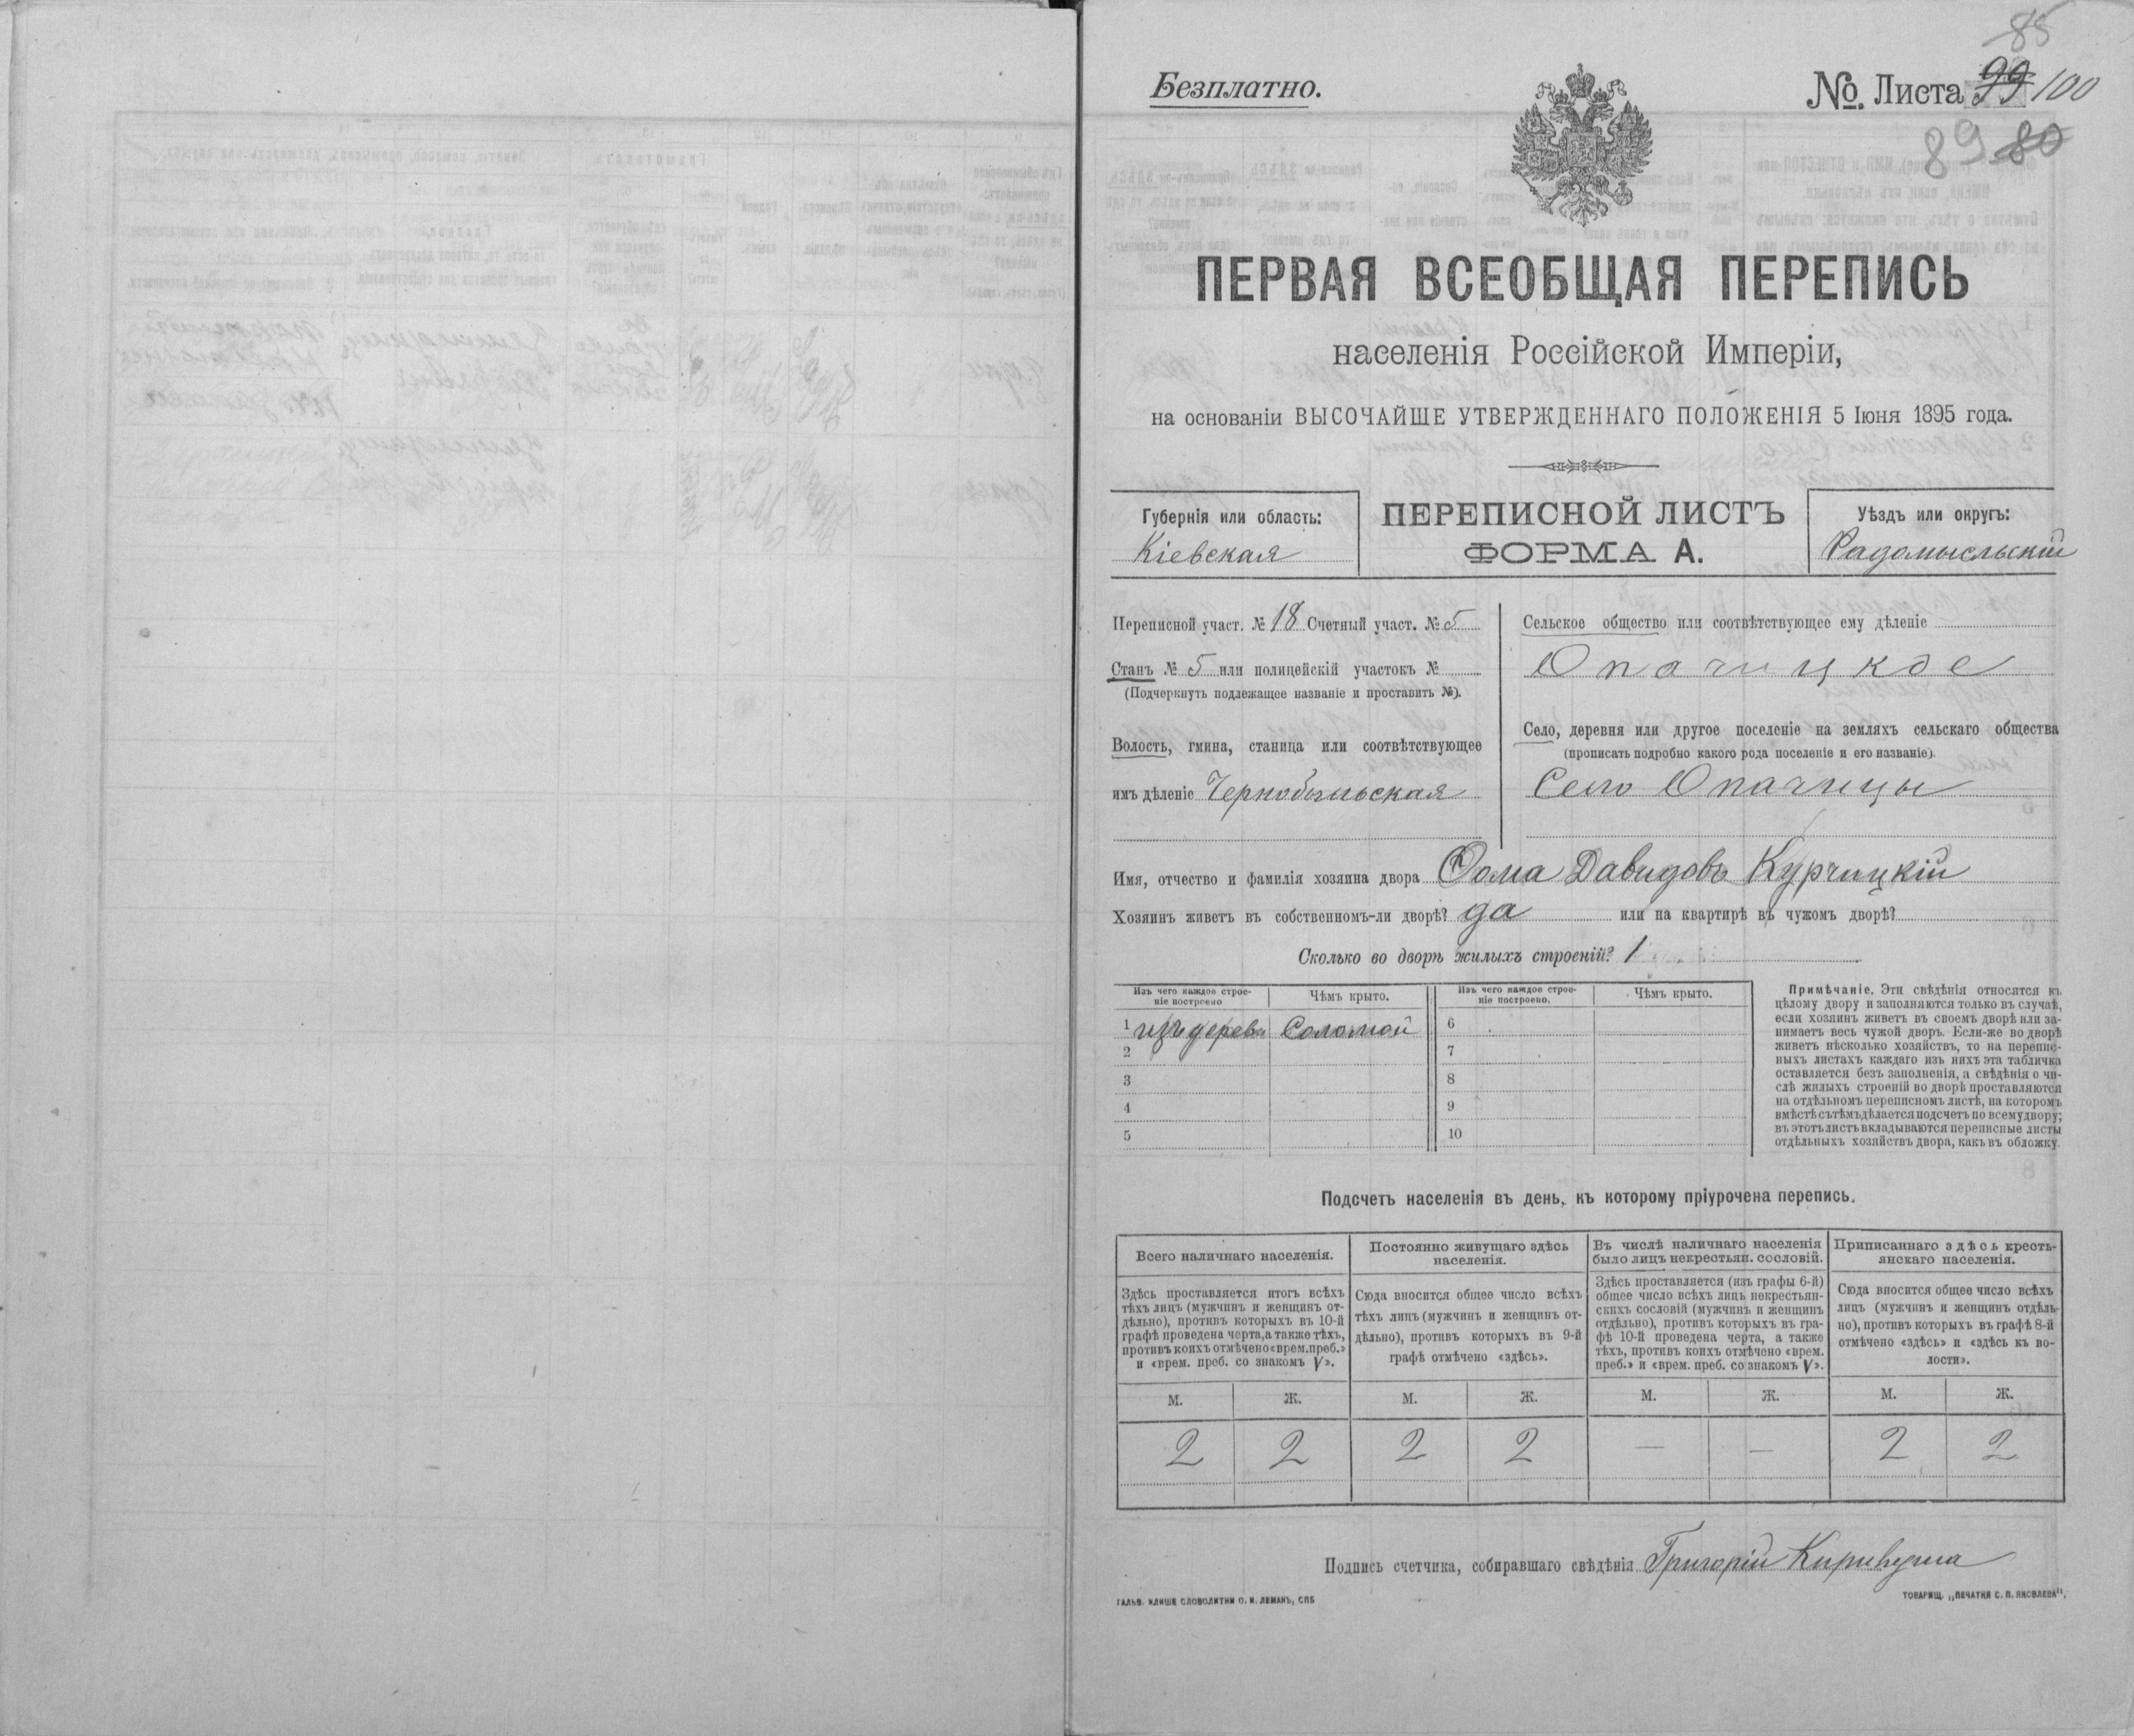 85
Безплатно.
№ Листа 99 100
89 80
ПЕРВАЯ ВСЕОБЩАЯ ПЕРЕПИСЬ
населенія Россійской Имперіи,
на основаніи ВЫСОЧАЙШЕ УТВЕРЖДЕННАГО ПОЛОЖЕНІЯ 5 Іюня 1895 года.
Губернія или область:
Кіевская
ПЕРЕПИСНОЙ ЛИСТЪ
ФОРМА А.
Уѣздъ или округъ:
Радомысльскій
Переписной участ. № 18 Счетный участ. № 5
Станъ № 5 или полицейскій участокъ №
(Подчеркнуть подлежащее названіе и проставить №).
Волость, гмина, станица или соотвѣтствующее
имъ дѣленіе Чернобыльская
Сельское общество или соотвѣтствующее ему дѣленіе
Опачицкое
Село, деревня или другое поселеніе на земляхъ сельскаго общества
(прописать подробно какого рода поселеніе и его названіе).
Село Опачицы
Имя, отчество и фамилія хозяина двора Ѳома Давидовъ Курчицкій
Хозяинъ живетъ въ собственномъ-ли дворѣ? да или на квартирѣ въ чужомъ дворѣ?
Сколько во дворѣ жилыхъ строеній? 1
Изъ чего каждое строе-
ніе построено
Чѣмъ крыто.
Изъ чего каждое строе-
ніе построено.
Чѣмъ крыто.
1 изъ дерева Соломой
2
3
4
5
6
7
8
9
10
Примѣчаніе. Эти свѣдѣнія относятся къ
цѣлому двору и заполняются только въ случаѣ,
если хозяинъ живетъ въ своемъ дворѣ или за-
нимаетъ весь чужой дворъ. Если-же во дворѣ
живетъ нѣсколько хозяйствъ, то на перепис-
ныхъ листахъ каждаго изъ нихъ эта табличка
оставляется безъ заполненія, а свѣдѣнія о чи-
слѣ жилыхъ строеній во дворѣ проставляются
на отдѣльномъ переписномъ листѣ, на которомъ
вмѣстѣ съ тѣмъ дѣлается подсчетъ по всему двору;
въ этотъ листъ вкладываются переписные листы
отдѣльныхъ хозяйствъ двора, какъ въ обложку.
Подсчетъ населенія въ день, къ которому пріурочена перепись.
Всего наличнаго населенія.
Здѣсь проставляется итогъ всѣхъ
тѣхъ лицъ (мужчинъ и женщинъ от-
дѣльно), противъ которыхъ въ 10-й
графѣ проведена черта, а также тѣхъ,
противъ коихъ отмѣчено «врем. преб.»
и «врем. преб. со знакомъ V».
Постоянно живущаго здѣсь
населенія.
Сюда вносится общее число всѣхъ
тѣхъ лицъ (мужчинъ и женщинъ от-
дѣльно), противъ которыхъ въ 9-й
графѣ отмѣчено «здѣсь».
Въ числѣ наличнаго населенія
было лицъ некрестьян. сословій.
Здѣсь проставляется (изъ графы 6-й)
общее число всѣхъ лицъ некрестьян-
скихъ сословій (мужчинъ и женщинъ
отдѣльно), противъ которыхъ въ гра-
фѣ 10-й проведена черта, а также
тѣхъ, противъ коихъ отмѣчено «врем.
преб.» и «врем. преб. со знакомъ V».
Приписаннаго здѣсь кресть-
янскаго населенія.
Сюда вносится общее число всѣхъ
лицъ (мужчинъ и женщинъ отдѣль-
но), противъ которыхъ въ графѣ 8-й
отмѣчено «здѣсь» и «здѣсь къ во-
лости».
М. Ж. М. Ж. М. Ж. М. Ж.
2 2 2 2 — — 2 2
Подпись счетчика, собиравшаго свѣдѣнія Григорій
ГАЛЬВ. КЛИШЕ СЛОВОЛИТНИ О. И. ЛЕМАНЪ, СПБ
ТОВАРИЩ. „ПЕЧАТНЯ С. П. ЯКОВЛЕВА“.